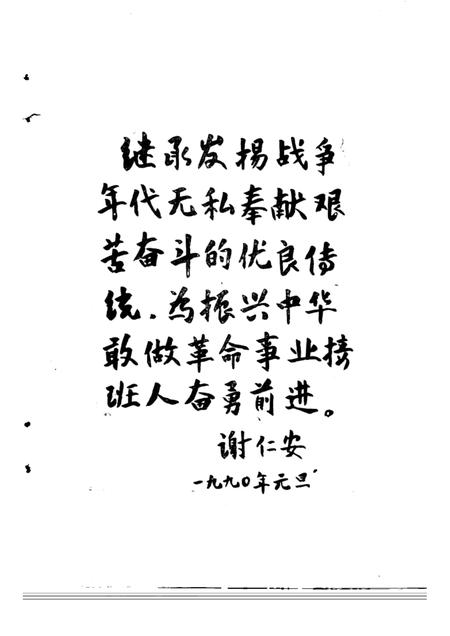 继承发揚战争
年代无私奉献艰
苦奋斗的优良传
统，为振兴中华
敢做革命事业接
班人奋勇前进。
谢仁安
一九九〇年元旦